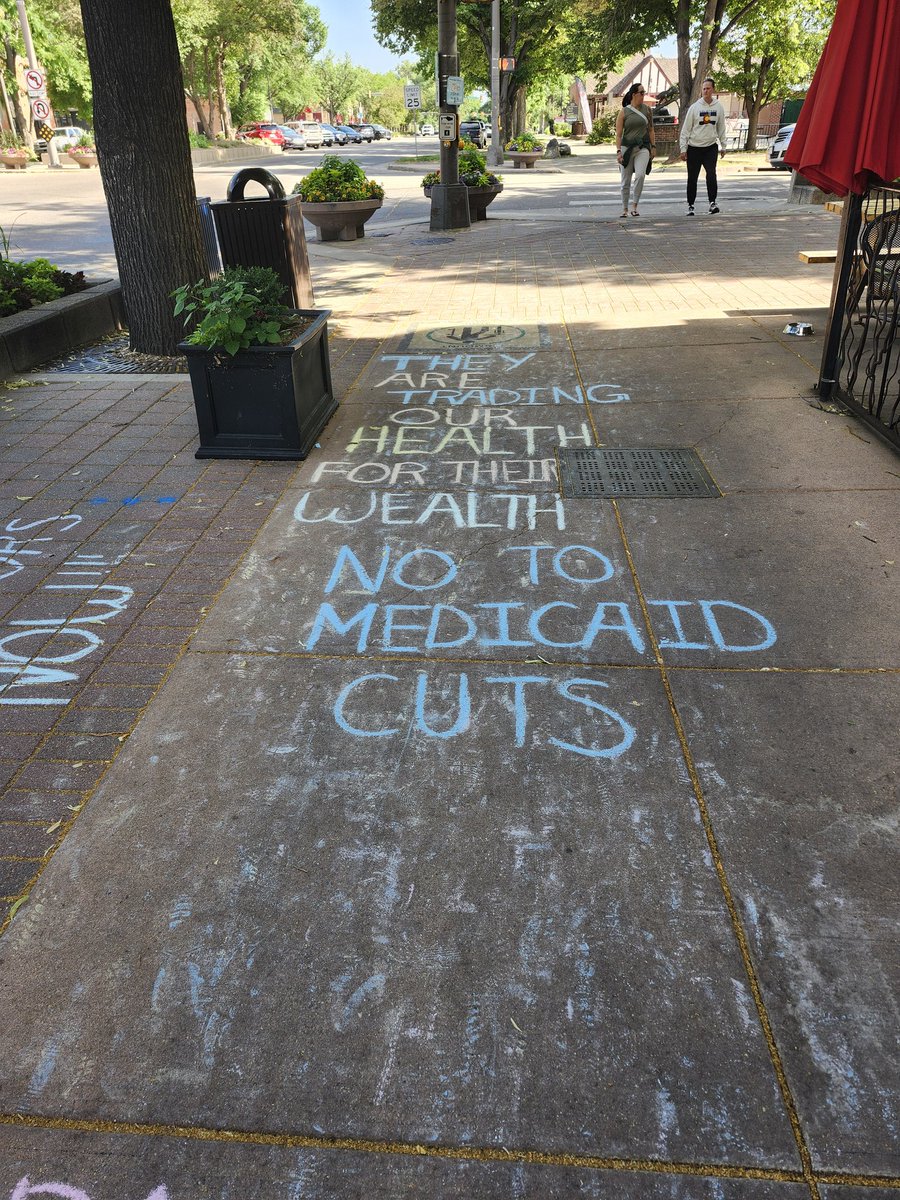 SPEED
LIMIT
25
THEY
ARE
TRADING
OUR
HEALTH
FOR THEIR
WEALTH
NO TO
MEDICAID
CUTS
NOW!!!